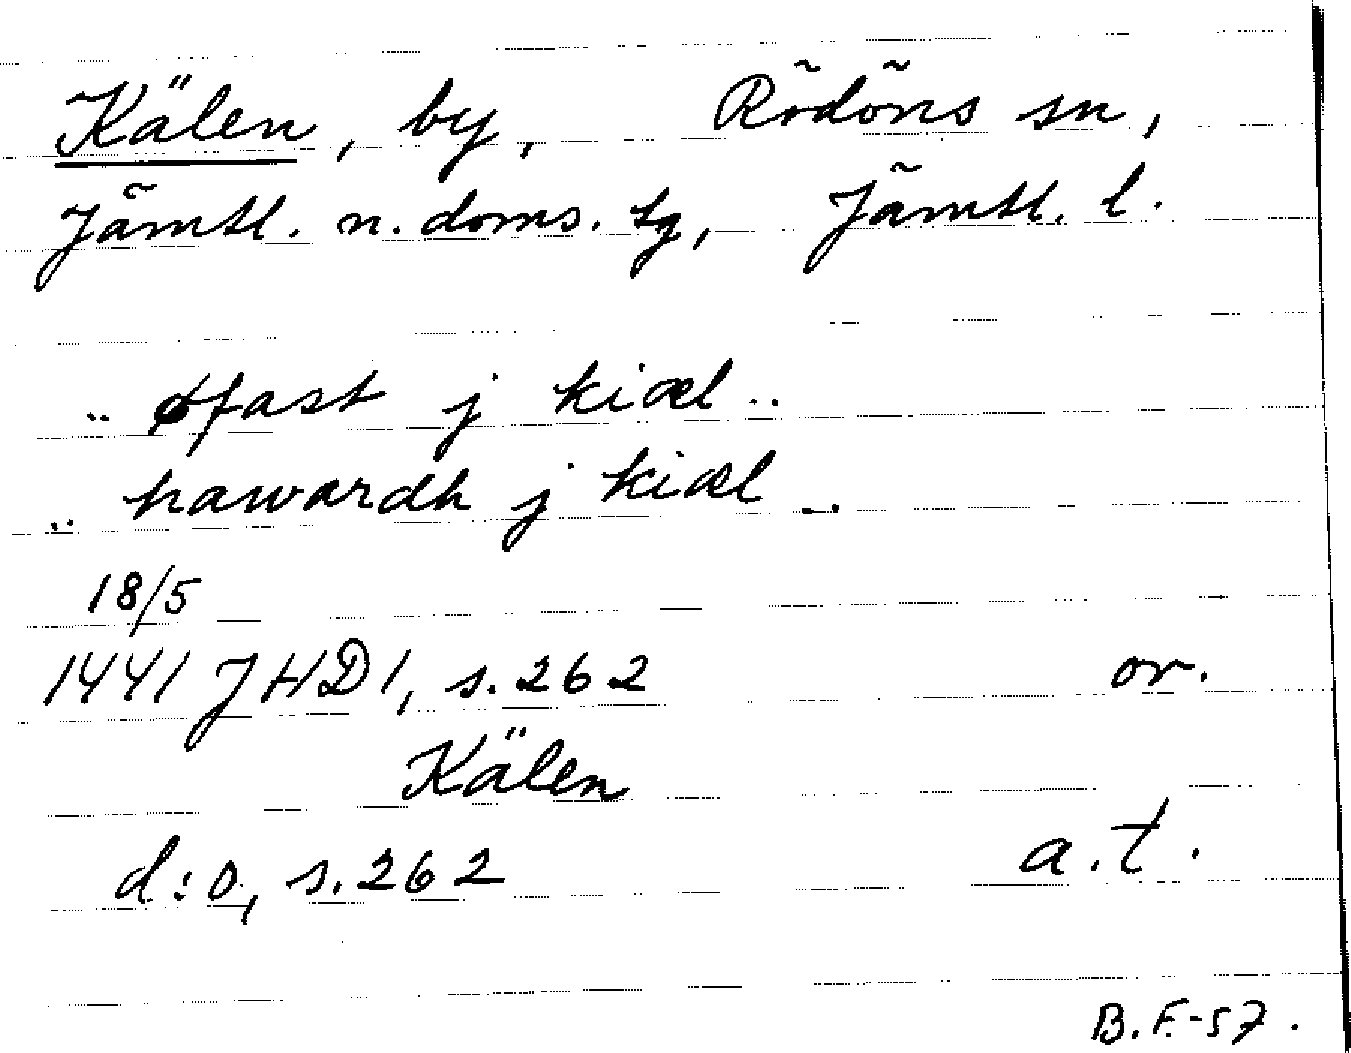 Kälen, by, Rödöns sn,
Jämtl. n. doms. tg, Jämtl. l.
.. øfast j kiæl ..
.. hawardh j kiæl ..
18/5
1441 JHD1, s.262 or.
Kälen
d:o, s.262 a.t.
B.F.-57.